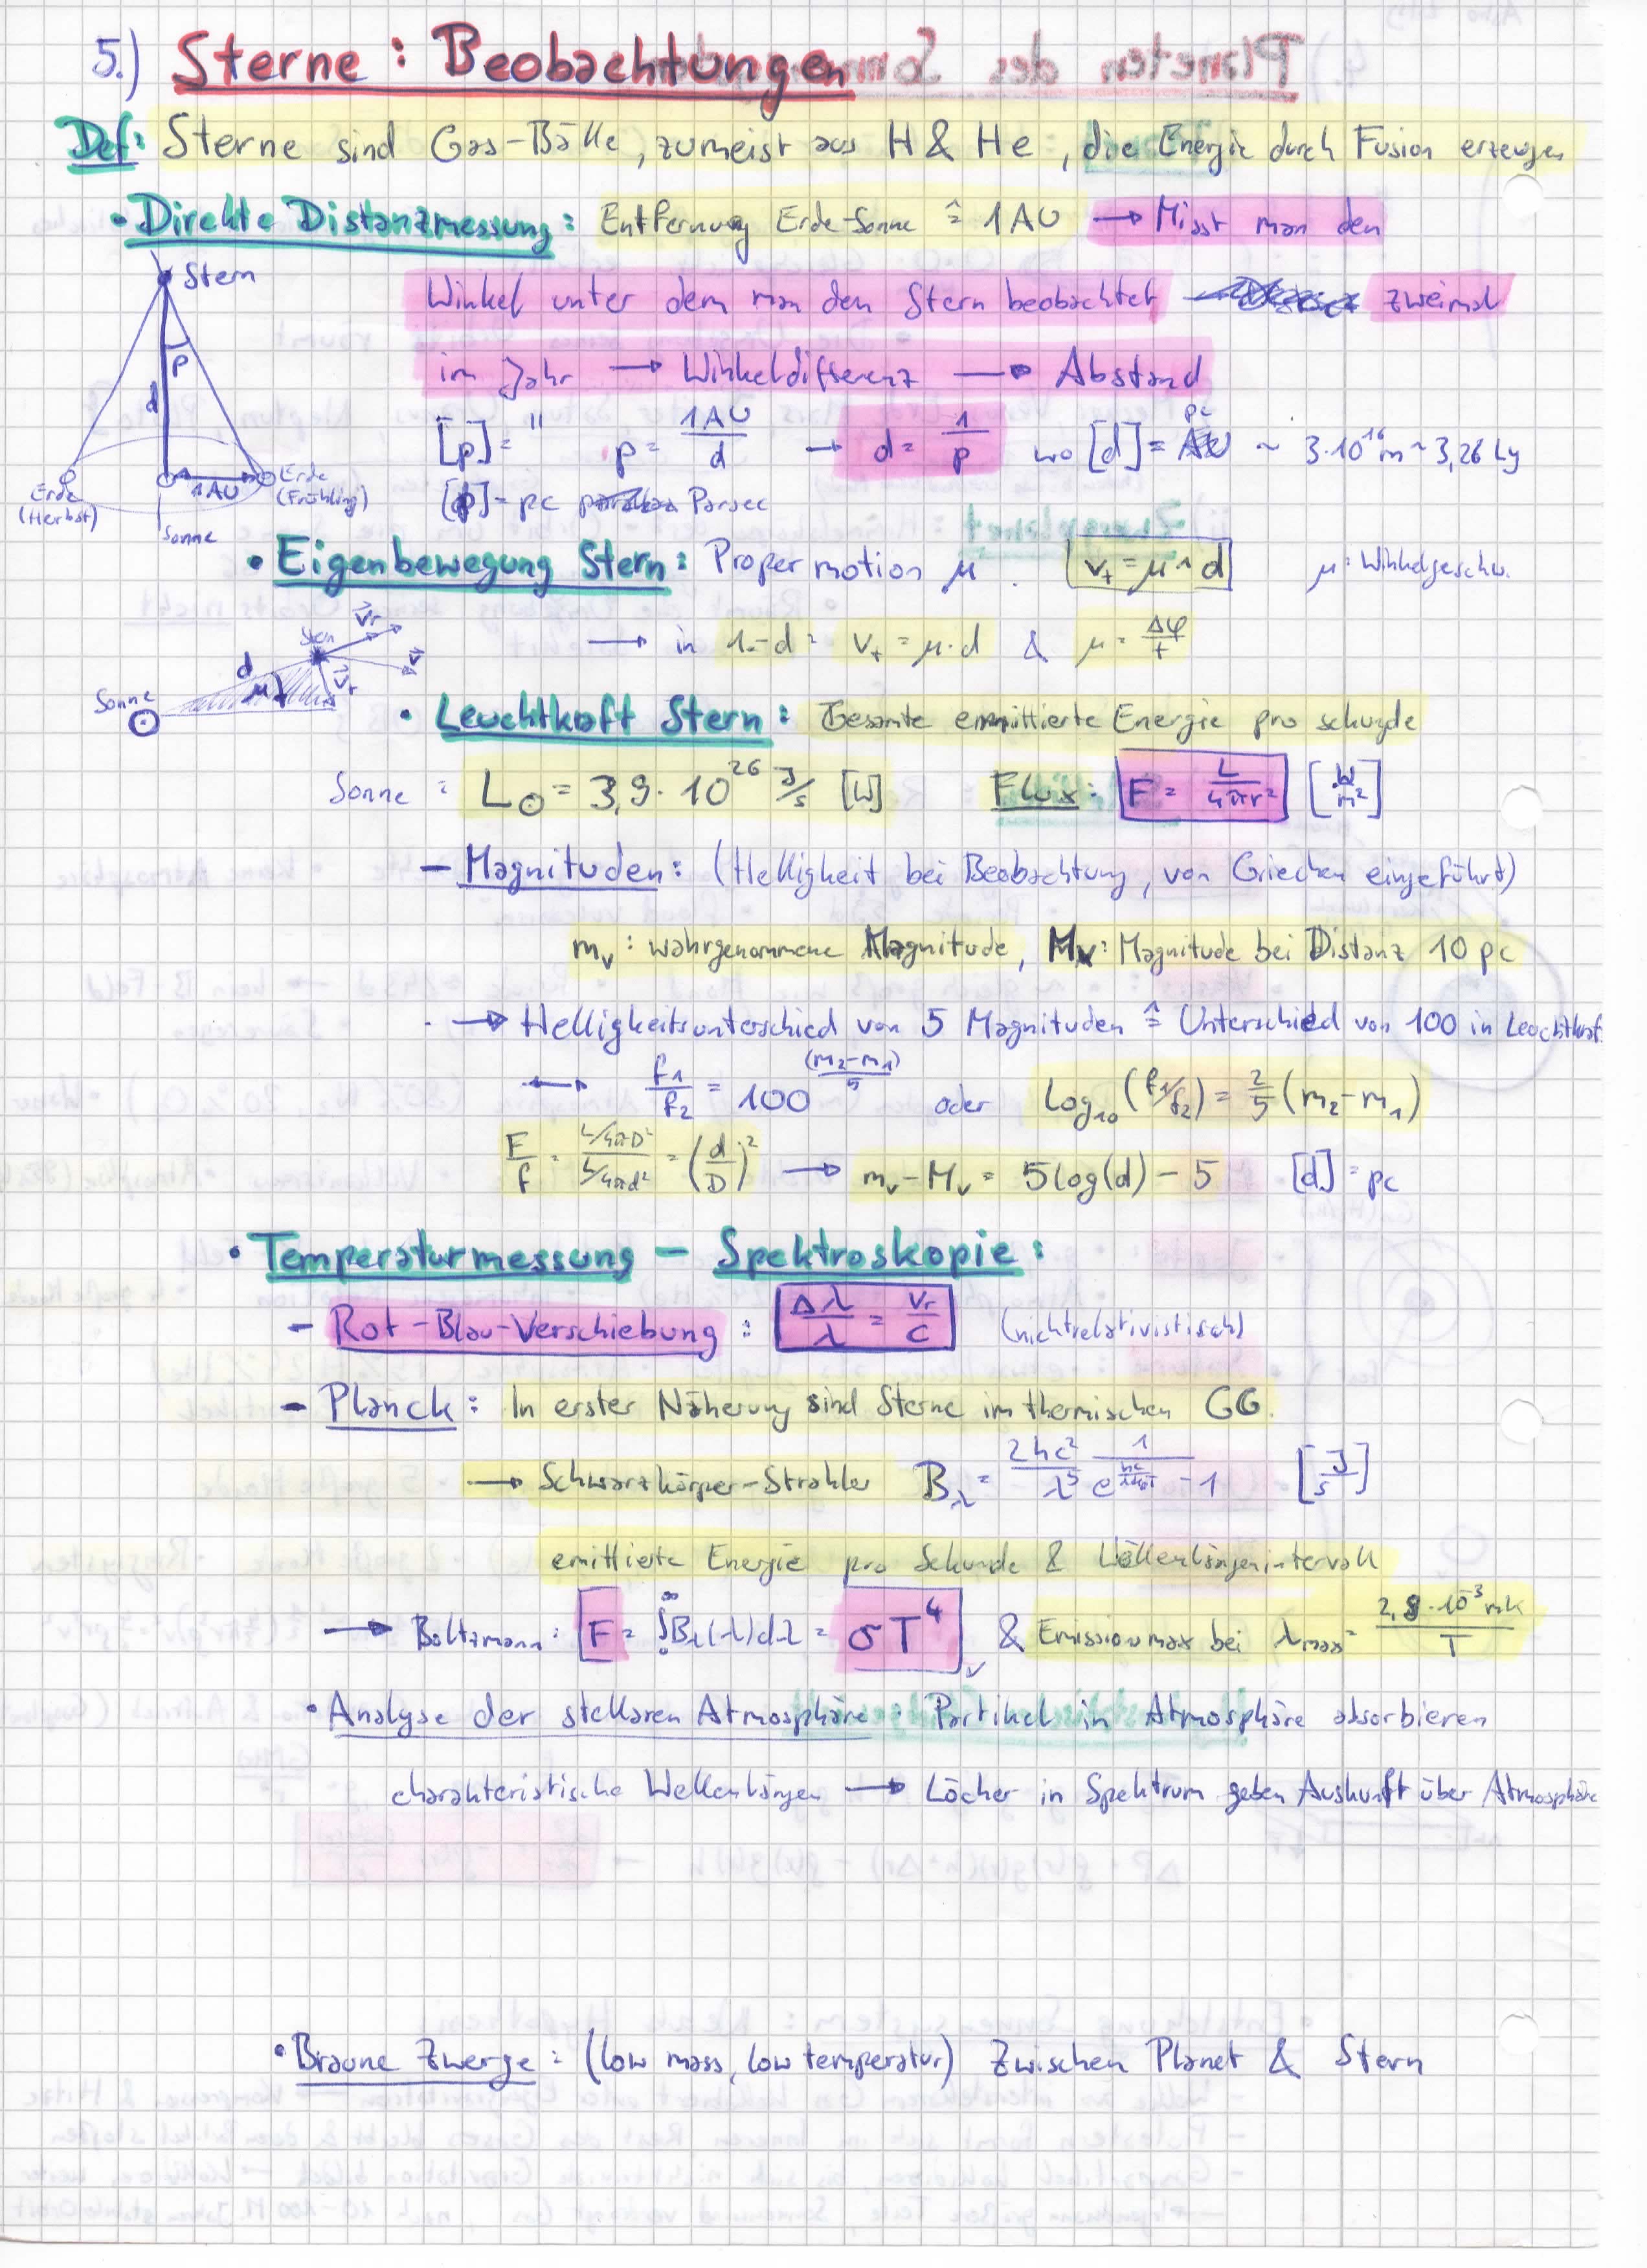 5.) Sterne: Beobachtungen
Def: Sterne sind Gas-Bälle, zumeist aus H & He, die Energie durch Fusion erzeugen
• Direkte Distanzmessung: Entfernung Erde-Sonne ≙ 1AU → Misst man den
Winkel unter dem man den Stern beobachtet zweimal
im Jahr → Winkeldifferenz → Abstand
Stern
p
d
1AU
Erde (Herbst)
Erde (Frühling)
Sonne
[p] = " p = 1AU/d → d = 1/p wo [d] = pc ~ 3·10^16 m ~ 3,26 Ly
[p] = pc Parsec
• Eigenbewegung Stern: Proper motion μ. v_t = μ ∧ d μ: Winkelgeschw.
→ in 1-d: v_t = μ·d & μ = Δφ/t
Stern
v_r
v
v_t
d
μ
Sonne
• Leuchtkraft Stern: Gesamte emittierte Energie pro sekunde
Sonne: L⊙ = 3,9·10^26 J/s [W] Flux: F = L/4πr² [W/m²]
– Magnituden: (Helligkeit bei Beobachtung, von Griechen eingeführt)
m_v: wahrgenommene Magnitude, M_v: Magnitude bei Distanz 10 pc
→ Helligkeitsunterschied von 5 Magnituden ≙ Unterschied von 100 in Leuchtkraft
↔ f₁/f₂ = 100^((m₂-m₁)/5) oder Log₁₀(f₁/f₂) = 2/5 (m₂-m₁)
F/f = (L/4πD²)/(L/4πd²) = (d/D)² → m_v - M_v = 5log(d) - 5 [d] = pc
• Temperaturmessung – Spektroskopie:
– Rot-Blau-Verschiebung: Δλ/λ = v_r/c (nichtrelativistisch)
– Planck: In erster Näherung sind Sterne im thermischen GG.
→ Schwarzkörper-Strahler B_λ = 2hc²/λ⁵ 1/(e^(hc/λkT) - 1) [J/s]
emittierte Energie pro Sekunde & Wellenlängenintervall
→ Boltzmann: F = ∫₀^∞ B_λ(λ)dλ = σT⁴ & Emissionsmax bei λ_max = 2,9·10^-3 mK/T
• Analyse der stellaren Atmosphäre: Partikel in Atmosphäre absorbieren
charakteristische Wellenlängen → Löcher in Spektrum geben Auskunft über Atmosphäre
• Braune Zwerge: (low mass, low temperatur) Zwischen Planet & Stern